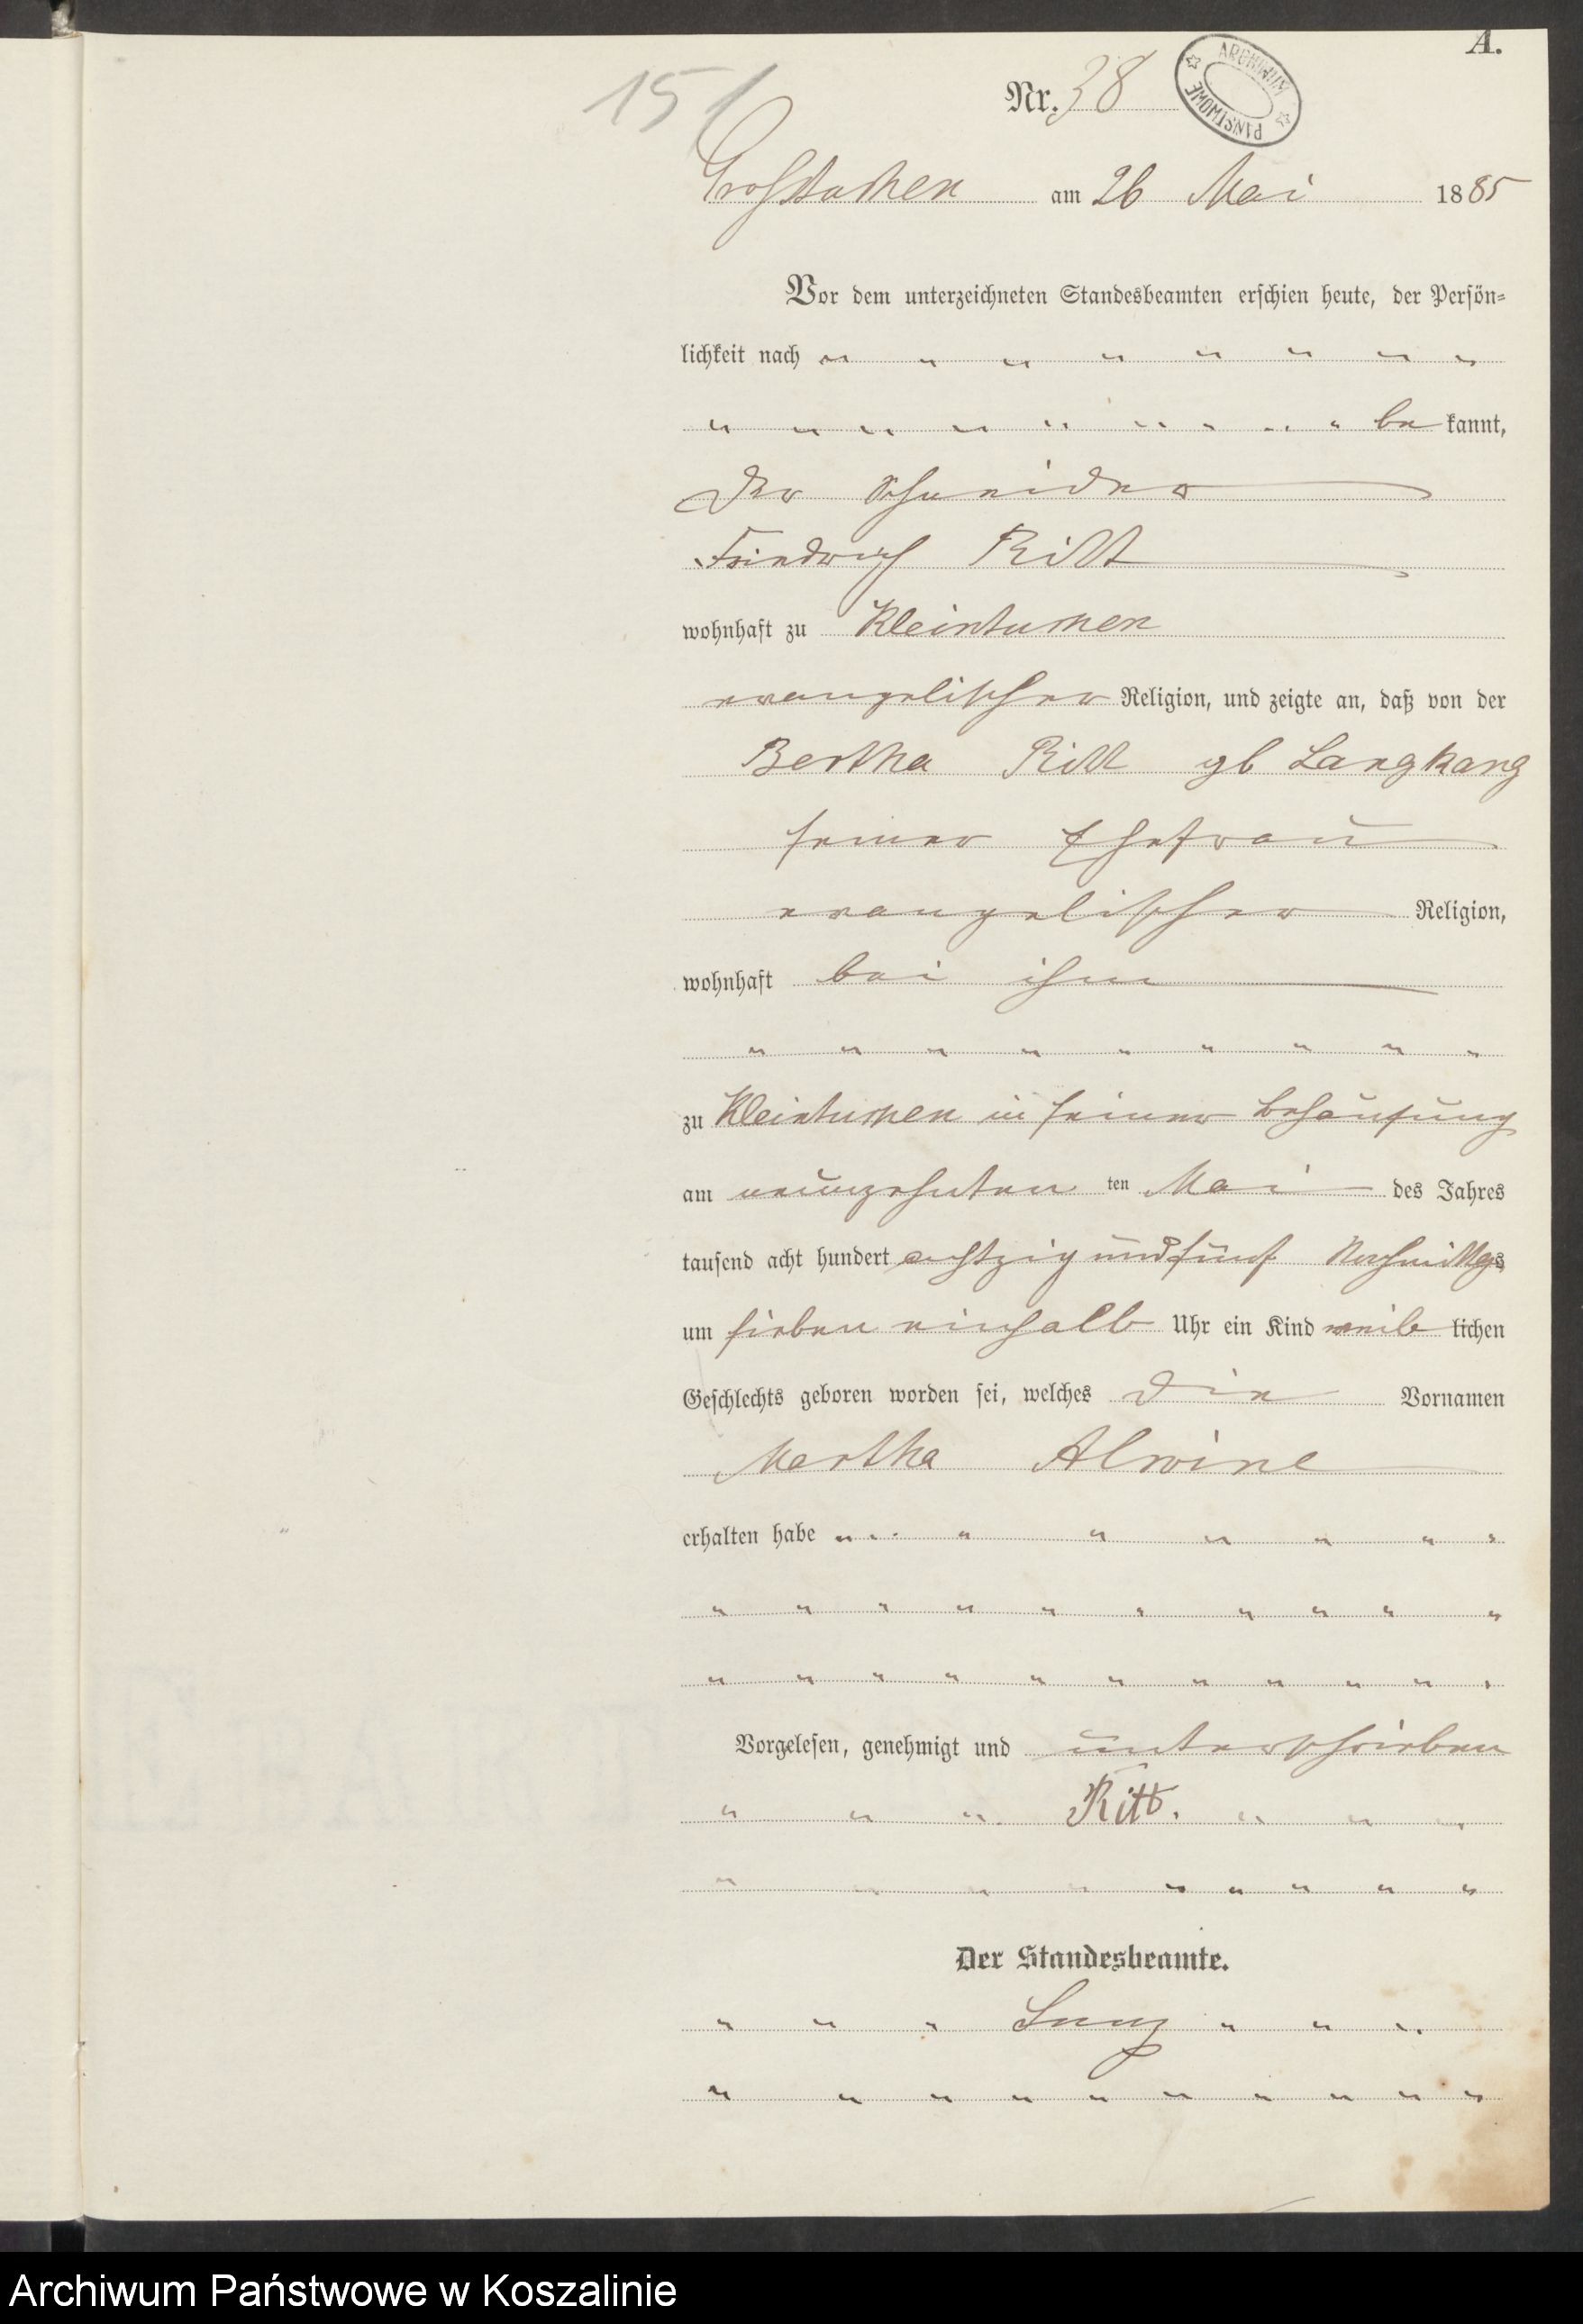 A.
15
Nr. 38
ARCHIWUM PAŃSTWOWE
am 26 Mai 1885
Vor dem unterzeichneten Standesbeamten erschien heute, der Persön-
lichkeit nach " " " " " " " "
" " " " " " " " " be kannt,
der Schneider
Friedrich Ritt
wohnhaft zu Kleintuchen
evangelischer Religion, und zeigte an, daß von der
Bertha Ritt gb Langkang
seiner Ehefrau
evangelischer Religion,
wohnhaft bei ihm
" " " " " " " " "
zu Kleintuchen in seiner Behausung
am neunzehnten ten Mai des Jahres
tausend acht hundert achtzig und fünf Nachmittgs
um sieben einhalb Uhr ein Kind weib lichen
Geschlechts geboren worden sei, welches die Vornamen
Martha Alwine
erhalten habe " " " " " " " "
" " " " " " " " " "
" " " " " " " " " " "
Vorgelesen, genehmigt und unterschrieben
" " " Ritt. " " "
" " " " " " " " "
Der Standesbeamte.
" " " " " "
" " " " " " " " " "
Archiwum Państwowe w Koszalinie